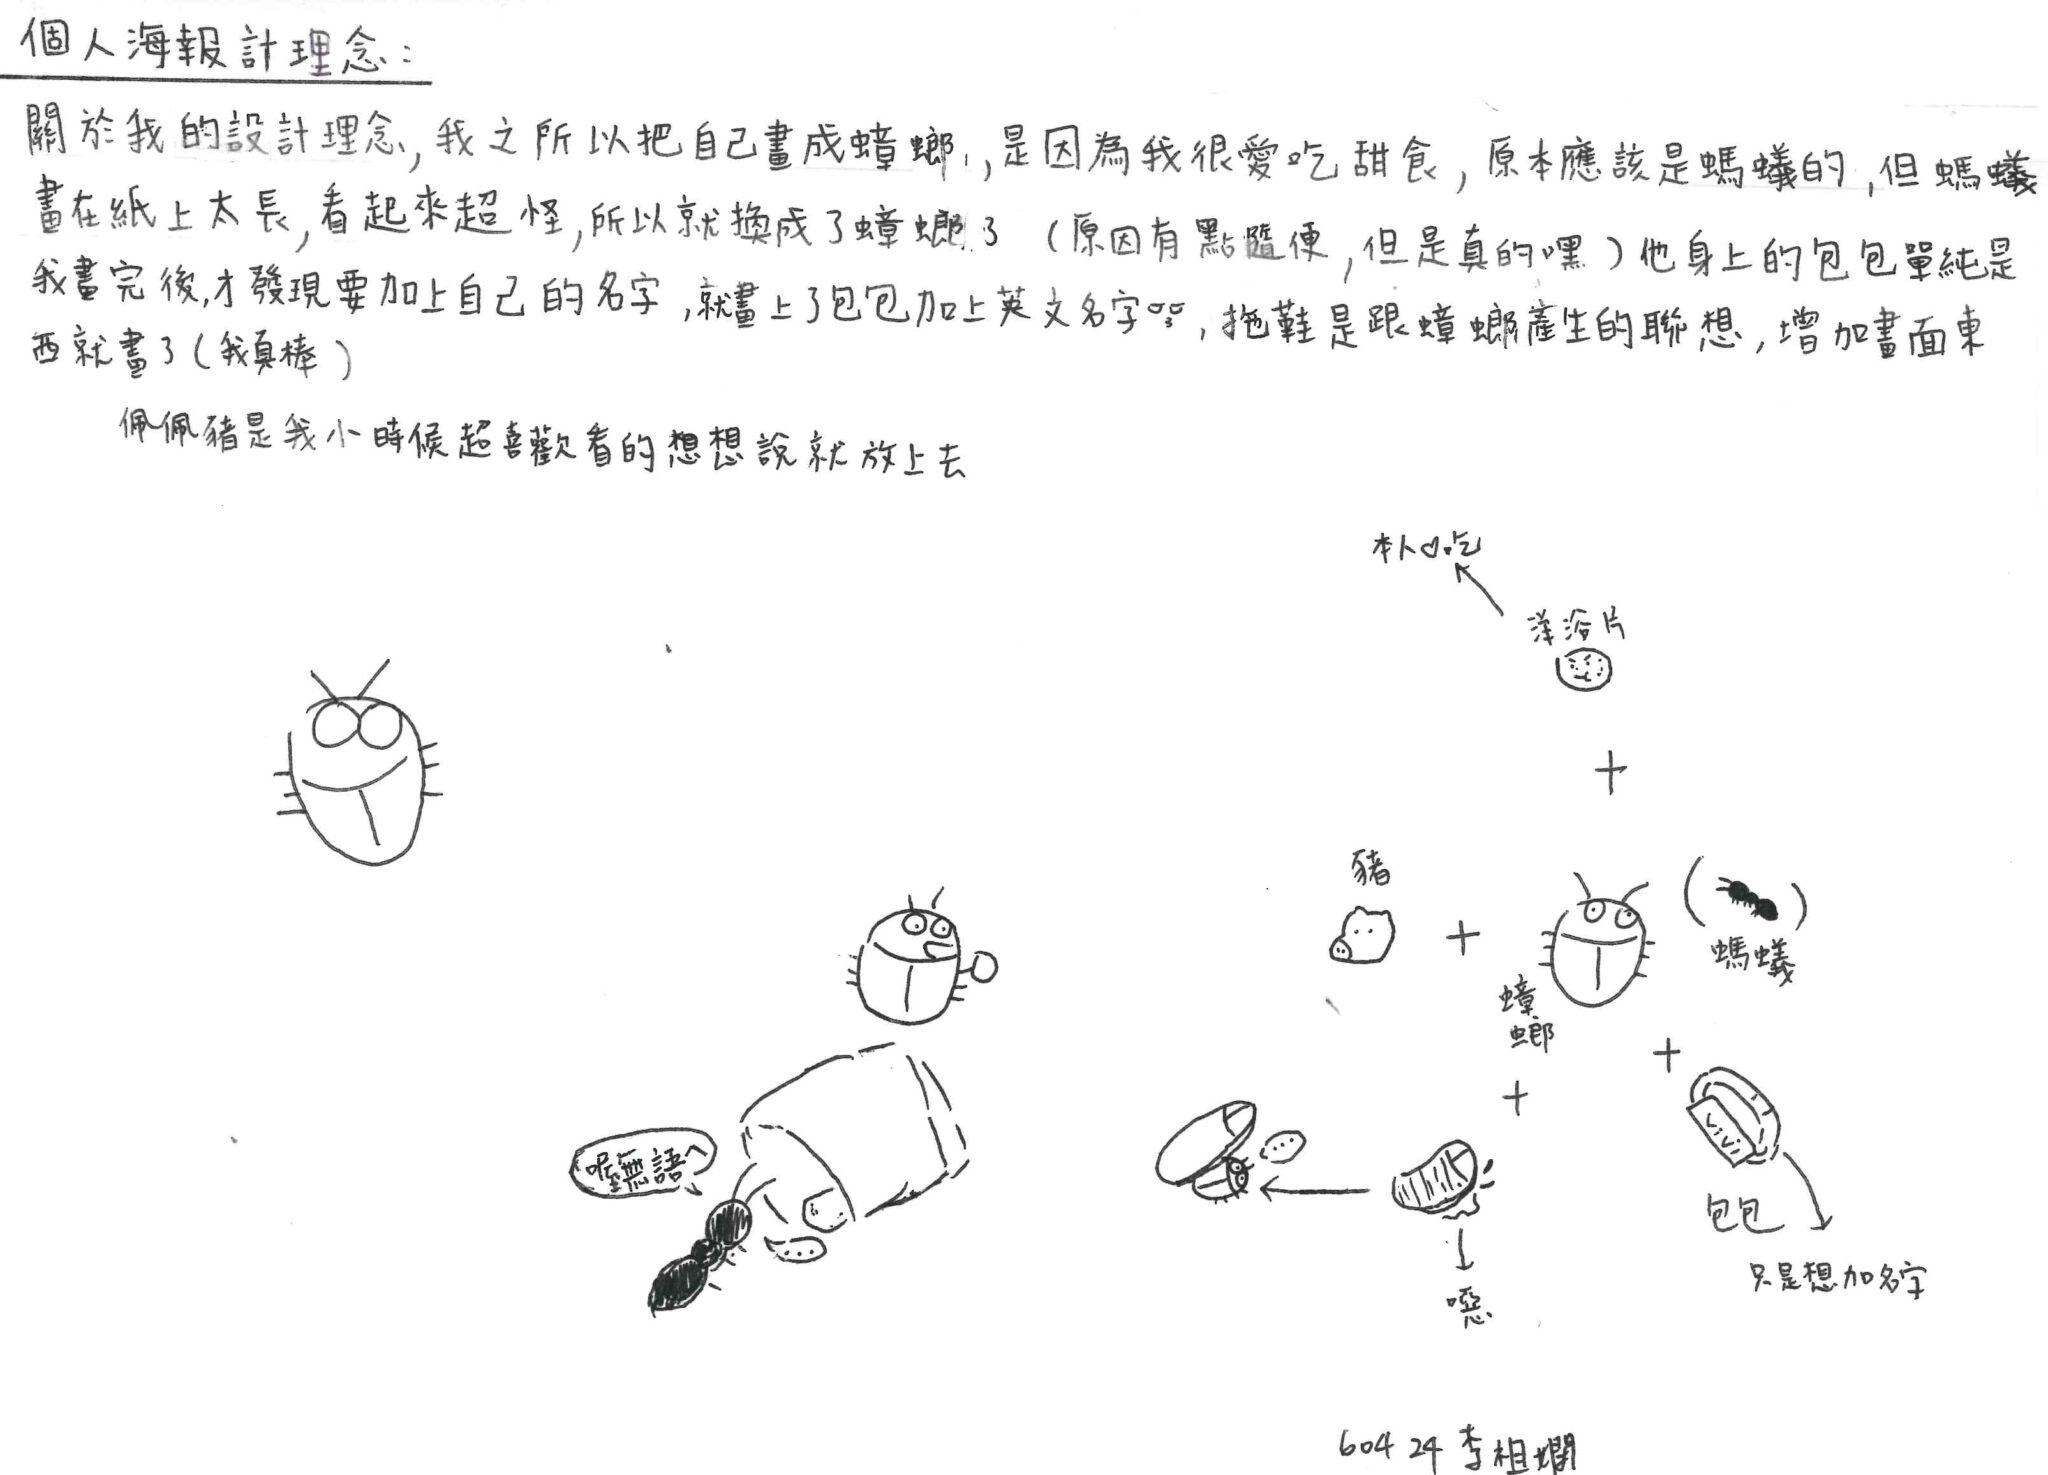 個人海報計理念：
關於我的設計理念,我之所以把自己畫成蟑螂,是因為我很愛吃甜食,原本應該是螞蟻的,但螞蟻
畫在紙上太長,看起來超怪,所以就換成了蟑螂了（原因有點隨便,但是真的嘿）他身上的包包單純是
我畫完後,才發現要加上自己的名字,就畫上了包包加上英文名字,拖鞋是跟蟑螂產生的聯想,增加畫面東
西就畫了(我真棒)
佩佩豬是我小時候超喜歡看的想想說就放上去
本人♡吃
洋浴片
+
豬
+
螞蟻
蟑螂
+
+
喔無語
...
...
LiVi
包包
只是想加名字
噁
604 24 李祖嫻